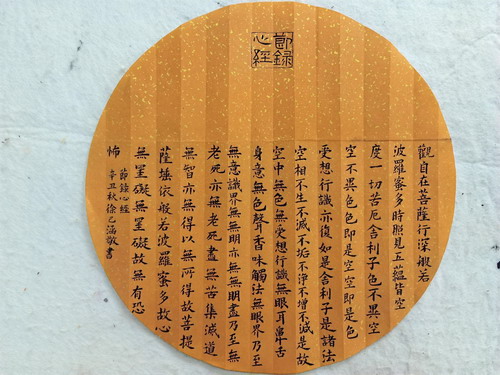 節錄
心經
觀自在菩薩行深般若
波羅蜜多時照見五蘊皆空
度一切苦厄舍利子色不異空
空不異色色即是空空即是色
受想行識亦復如是舍利子是諸法
空相不生不滅不垢不淨不增不減是故
空中無色無受想行識無眼耳鼻舌
身意無色聲香味觸法無眼界乃至
無意識界無無明亦無無明盡乃至無
老死亦無老死盡無苦集滅道
無智亦無得以無所得故菩提
薩埵依般若波羅蜜多故心
無罣礙無罣礙故無有恐
怖
節錄心經
辛丑秋徐敬書